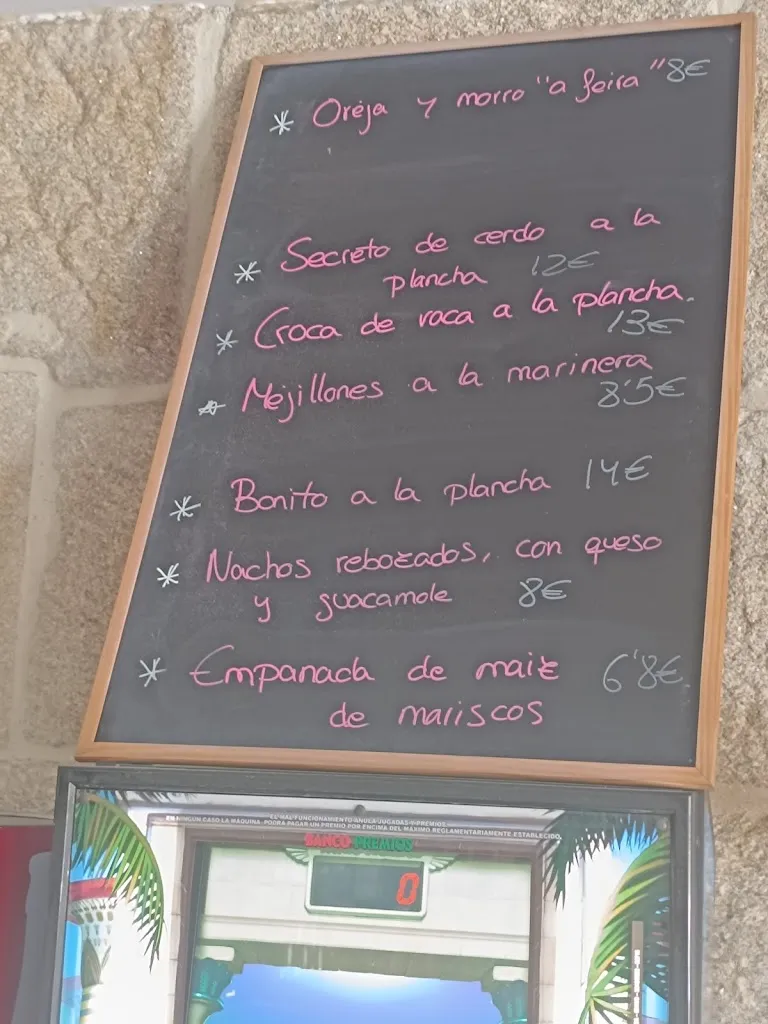 * Oreja y morro "a feira" 8€
* Secreto de cerdo a la
plancha 12€
* Croca de vaca a la plancha.
13€
* Mejillones a la marinera
8'5€
* Bonito a la plancha 14€
* Nachos rebozados, con queso
y guacamole 8€
* Empanada de maiz 6'8€
de mariscos
EL MAL FUNCIONAMIENTO ANULA JUGADAS Y PREMIOS
EN NINGUN CASO LA MÁQUINA PODRÁ PAGAR UN PREMIO POR ENCIMA DEL MÁXIMO REGLAMENTARIAMENTE ESTABLECIDO.
BANCO PREMIOS
0